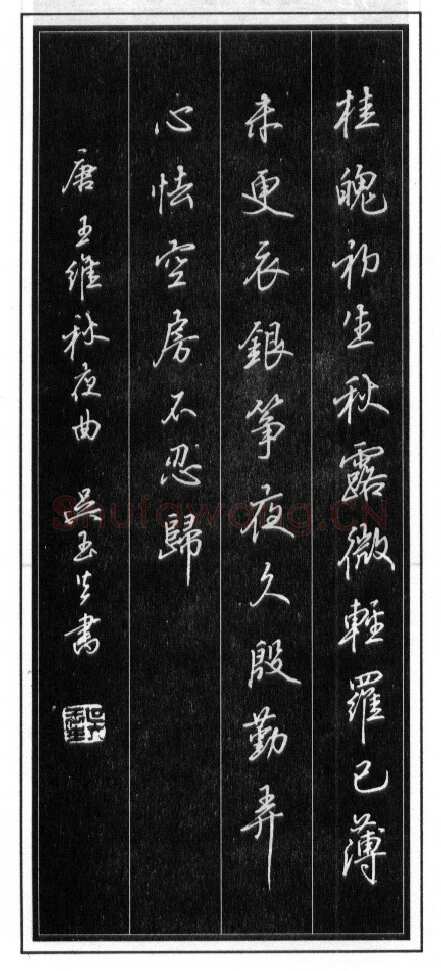 桂魄初生秋露微輕羅已薄
未更衣銀箏夜久殷勤弄
心怯空房不忍歸
唐王維秋夜曲 吳玉生書
Shufawang.CN